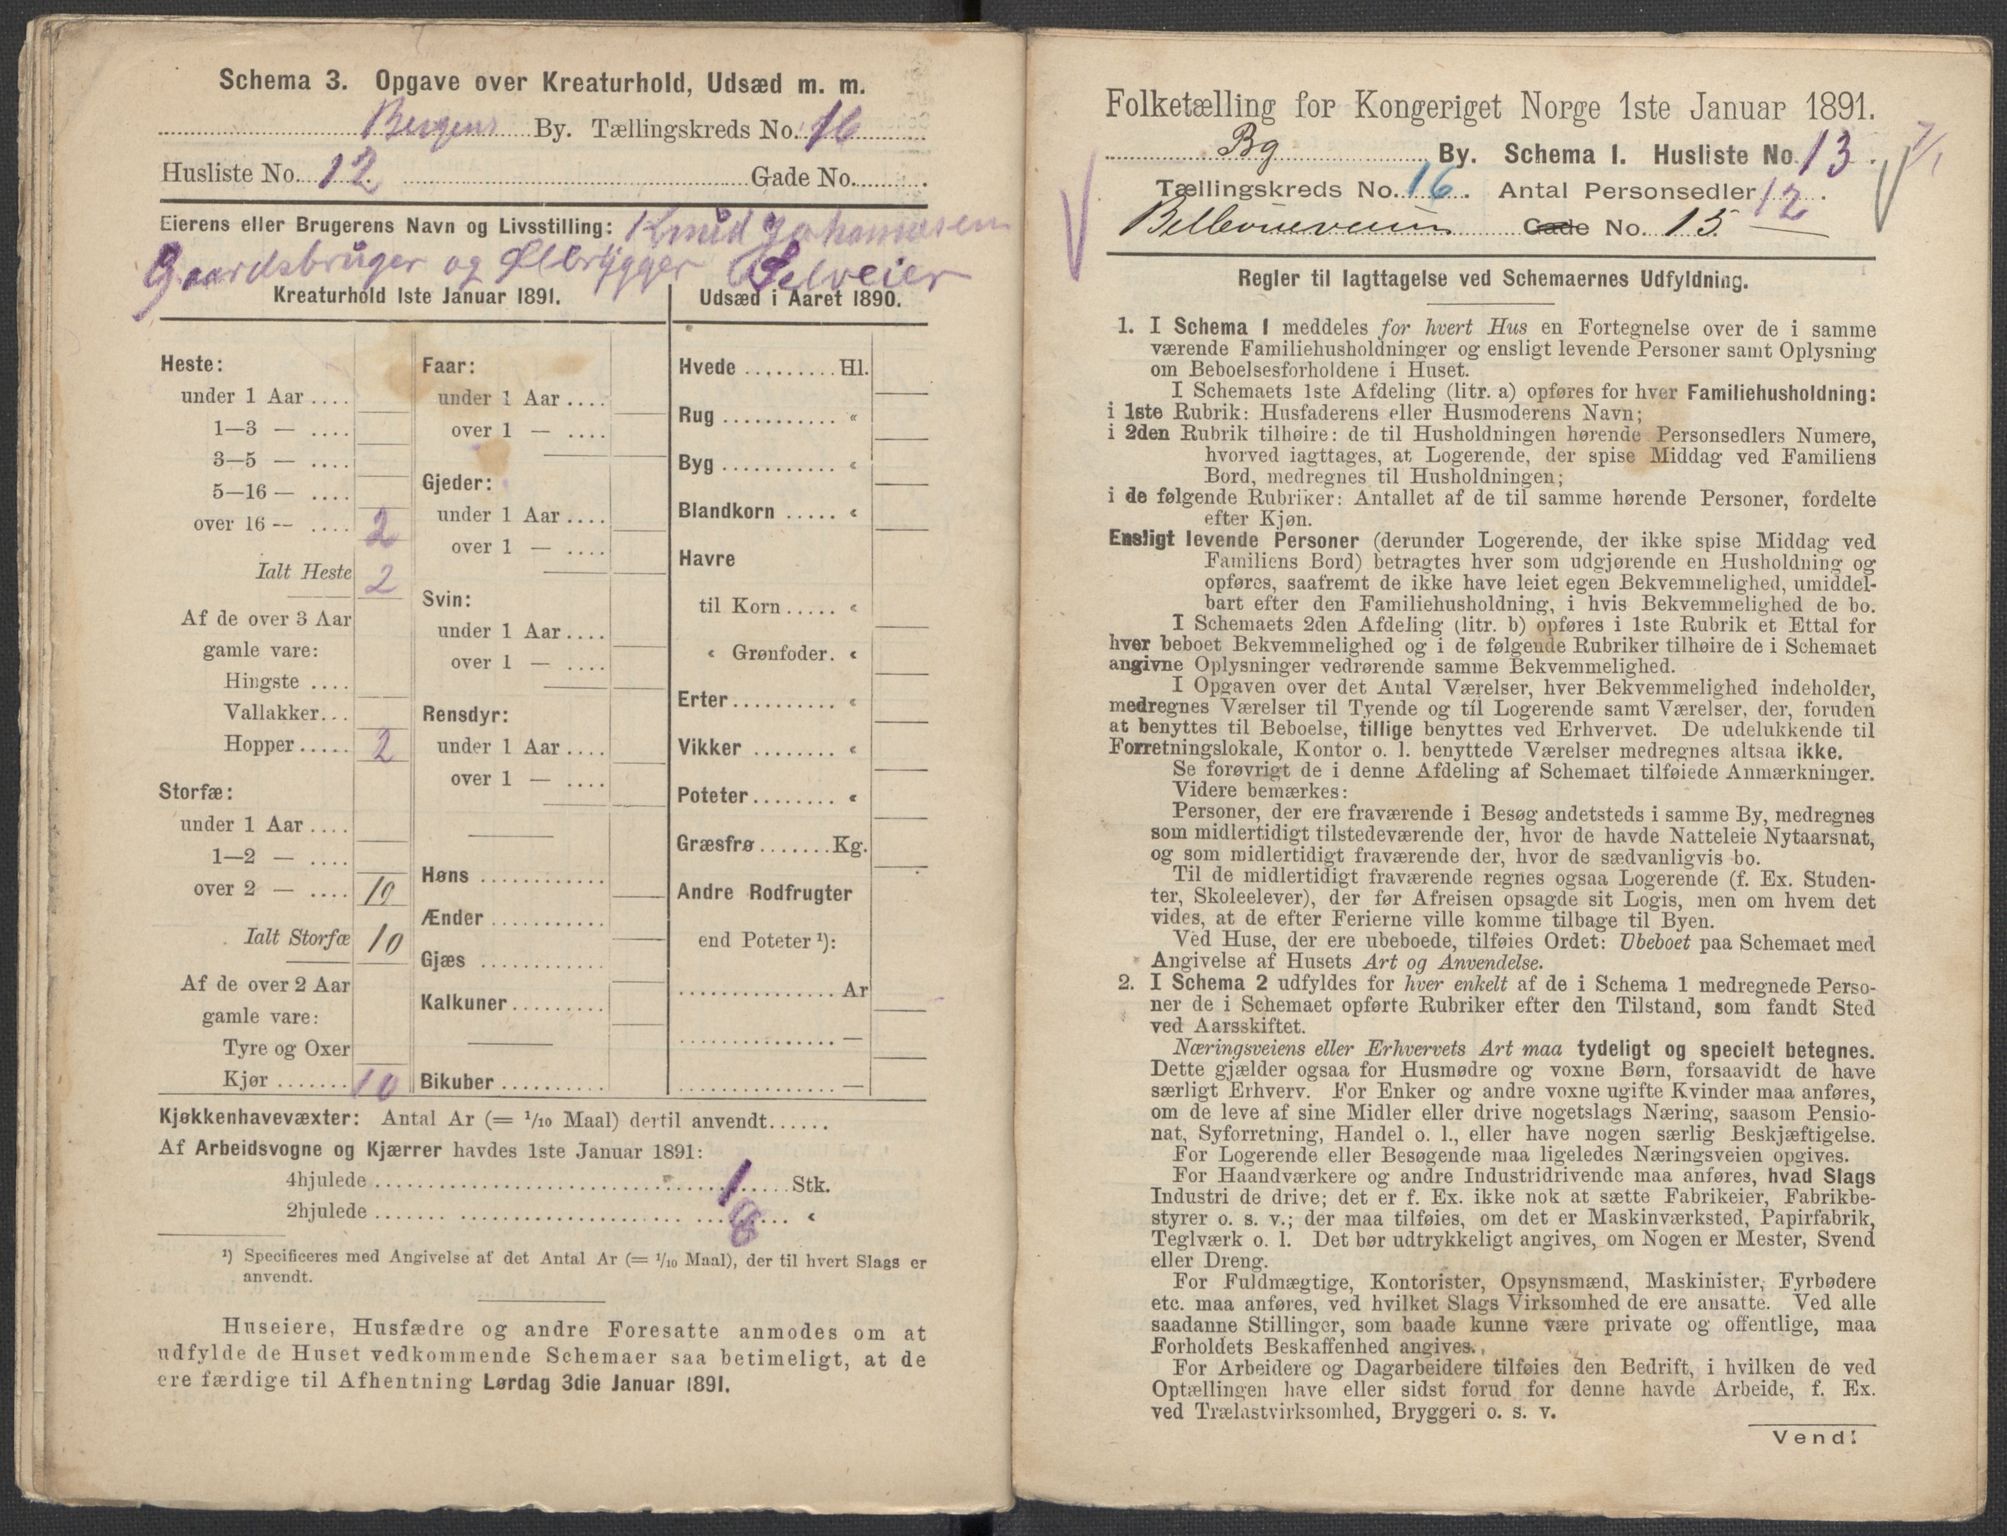 Schema 3. Opgave over Kreaturhold, Udsæd m. m.
Bergens By. Tællingskreds No. 16
Husliste No. 12. Gade No.
Eierens eller Brugerens Navn og Livsstilling: Knud Johannesen
Gaardsbruger og Ølbrygger Selveier
Kreaturhold 1ste Januar 1891.
Heste:
under 1 Aar ....
1—3 — ....
3—5 — ....
5—16 — ....
over 16 — .... 2
Ialt Heste 2
Af de over 3 Aar
gamle vare:
Hingste ....
Vallakker...
Hopper ..... 2
Storfæ:
under 1 Aar ....
1—2 — ....
over 2 — .... 10
Ialt Storfæ 10
Af de over 2 Aar
gamle vare:
Tyre og Oxer
Kjør ....... 10
Faar:
under 1 Aar ....
over 1 — ....
Gjeder:
under 1 Aar ....
over 1 — ....
Svin:
under 1 Aar ....
over 1 — ....
Rensdyr:
under 1 Aar ....
over 1 — ....
Høns ............
Ænder ...........
Gjæs ............
Kalkuner .........
Bikuber ..........
Udsæd i Aaret 1890.
Hvede ......... Hl.
Rug ........... «
Byg ........... «
Blandkorn ..... «
Havre
til Korn ..... «
« Grønfoder. «
Erter .......... «
Vikker ........ «
Poteter ........ «
Græsfrø ....... Kg.
Andre Rodfrugter
end Poteter ¹):
............... Ar
............... —
............... —
Kjøkkenhavevæxter: Antal Ar (= 1/10 Maal) dertil anvendt......
Af Arbeidsvogne og Kjærrer havdes 1ste Januar 1891:
4hjulede ........ 1 ..... Stk.
2hjulede ........ 8 ..... «
¹) Specificeres med Angivelse af det Antal Ar (= 1/10 Maal), der til hvert Slags er
anvendt.
Huseiere, Husfædre og andre Foresatte anmodes om at
udfylde de Huset vedkommende Schemaer saa betimeligt, at de
ere færdige til Afhentning Lørdag 3die Januar 1891.
Folketælling for Kongeriget Norge 1ste Januar 1891.
7/1
Bg By. Schema 1. Husliste No. 13.
Tællingskreds No. 16. Antal Personsedler 12.
Bellevueveien Gade No. 15
Regler til Iagttagelse ved Schemaernes Udfyldning.
1. I Schema 1 meddeles for hvert Hus en Fortegnelse over de i samme
værende Familiehusholdninger og ensligt levende Personer samt Oplysning
om Beboelsesforholdene i Huset.
I Schemaets 1ste Afdeling (litr. a) opføres for hver Familiehusholdning:
i 1ste Rubrik: Husfaderens eller Husmoderens Navn;
i 2den Rubrik tilhøire: de til Husholdningen hørende Personsedlers Numere,
hvorved iagttages, at Logerende, der spise Middag ved Familiens
Bord, medregnes til Husholdningen;
i de følgende Rubriker: Antallet af de til samme hørende Personer, fordelte
efter Kjøn.
Ensligt levende Personer (derunder Logerende, der ikke spise Middag ved
Familiens Bord) betragtes hver som udgjørende en Husholdning og
opføres, saafremt de ikke have leiet egen Bekvemmelighed, umiddel-
bart efter den Familiehusholdning, i hvis Bekvemmelighed de bo.
I Schemaets 2den Afdeling (litr. b) opføres i 1ste Rubrik et Ettal for
hver beboet Bekvemmelighed og i de følgende Rubriker tilhøire de i Schemaet
angivne Oplysninger vedrørende samme Bekvemmelighed.
I Opgaven over det Antal Værelser, hver Bekvemmelighed indeholder,
medregnes Værelser til Tyende og til Logerende samt Værelser, der, foruden
at benyttes til Beboelse, tillige benyttes ved Erhvervet. De udelukkende til
Forretningslokale, Kontor o. l. benyttede Værelser medregnes altsaa ikke.
Se forøvrigt de i denne Afdeling af Schemaet tilføiede Anmærkninger.
Videre bemærkes:
Personer, der ere fraværende i Besøg andetsteds i samme By, medregnes
som midlertidigt tilstedeværende der, hvor de havde Natteleie Nytaarsnat,
og som midlertidigt fraværende der, hvor de sædvanligvis bo.
Til de midlertidigt fraværende regnes ogsaa Logerende (f. Ex. Studen-
ter, Skoleelever), der før Afreisen opsagde sit Logis, men om hvem det
vides, at de efter Ferierne ville komme tilbage til Byen.
Ved Huse, der ere ubeboede, tilføies Ordet: Ubeboet paa Schemaet med
Angivelse af Husets Art og Anvendelse.
2. I Schema 2 udfyldes for hver enkelt af de i Schema 1 medregnede Perso-
ner de i Schemaet opførte Rubriker efter den Tilstand, som fandt Sted
ved Aarsskiftet.
Næringsveiens eller Erhvervets Art maa tydeligt og specielt betegnes.
Dette gjælder ogsaa for Husmødre og voxne Børn, forsaavidt de have
særligt Erhverv. For Enker og andre voxne ugifte Kvinder maa anføres,
om de leve af sine Midler eller drive nogetslags Næring, saasom Pensio-
nat, Syforretning, Handel o. l., eller have nogen særlig Beskjæftigelse.
For Logerende eller Besøgende maa ligeledes Næringsveien opgives.
For Haandværkere og andre Industridrivende maa anføres, hvad Slags
Industri de drive; det er f. Ex. ikke nok at sætte Fabrikeier, Fabrikbe-
styrer o. s. v.; der maa tilføies, om det er Maskinværksted, Papirfabrik,
Teglværk o. l. Det bør udtrykkeligt angives, om Nogen er Mester, Svend
eller Dreng.
For Fuldmægtige, Kontorister, Opsynsmænd, Maskinister, Fyrbødere
etc. maa anføres, ved hvilket Slags Virksomhed de ere ansatte. Ved alle
saadanne Stillinger, som baade kunne være private og offentlige, maa
Forholdets Beskaffenhed angives.
For Arbeidere og Dagarbeidere tilføies den Bedrift, i hvilken de ved
Optællingen have eller sidst forud for denne havde Arbeide, f. Ex.
ved Trælastvirksomhed, Bryggeri o. s. v.
Vend!